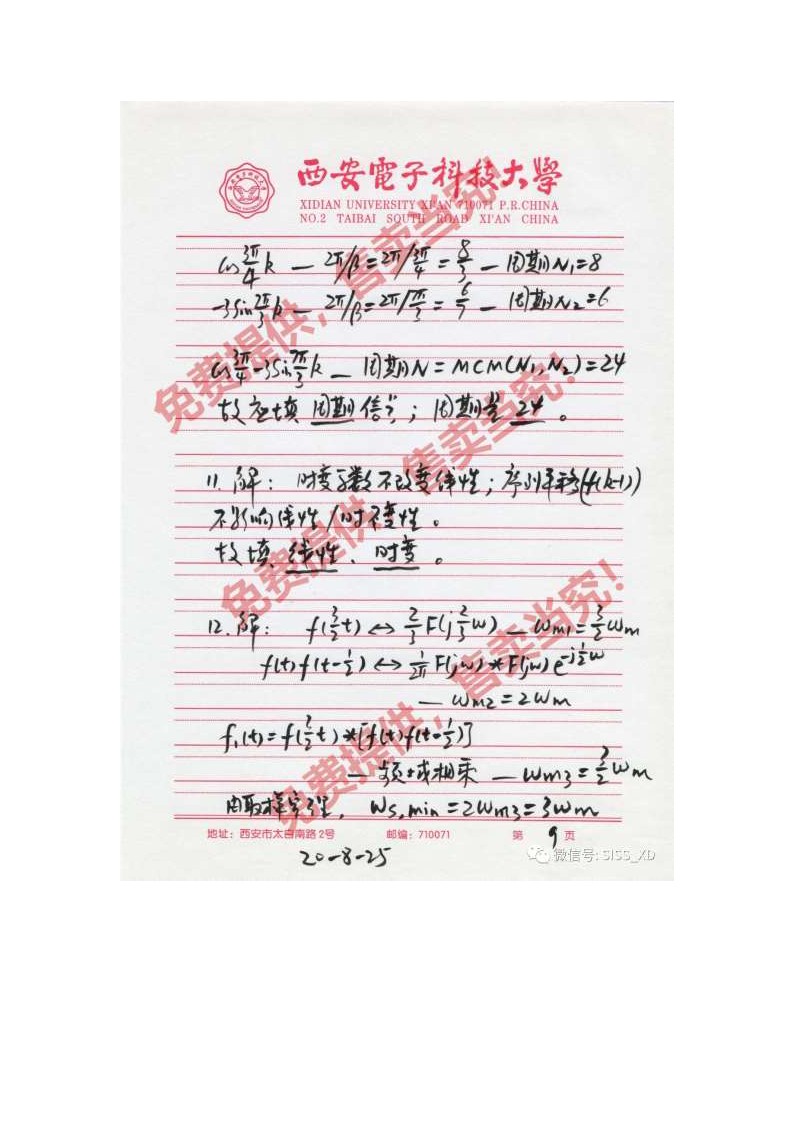 西安電子科技大學
XIDIAN UNIVERSITY XI'AN 710071 P.R.CHINA
NO.2 TAIBAI SOUTH ROAD XI'AN CHINA
cos 3π/4 k — 2π/β = 2π/ 3π/4 = 8/3 — 周期N₁=8
-3sin 7π/3 k — 2π/β = 2π/ 7π/3 = 6/7 — 周期N₂=6
cos 3π/4 -3sin 7π/3 k — 周期N = MCM(N₁,N₂) = 24
故应填 周期信号; 周期是 24 。
11. 解: 时变系数不改变线性; 序列平移(f(k-1))
不影响线性/时不变性。
故填 线性、时变。
12. 解: f(3/2 t) ↔ 2/3 F(j 2/3 w) — wm1 = 3/2 wm
f(t) f(t-1/2) ↔ 1/2π F(jw) * F(jw) e^-j 1/2 w
— wm2 = 2wm
f₁(t) = f(3/2 t) * [f(t) f(t-1/2)]
— 频域相乘 — wm3 = 3/2 wm
由取样定理, ws,min = 2wm3 = 3wm
地址: 西安市太白南路2号 邮编: 710071 第 9 页
20-8-25
微信号: SISS_XD
免费提供, 售卖当究!
免费提供, 售卖当究!
免费提供, 售卖当究!